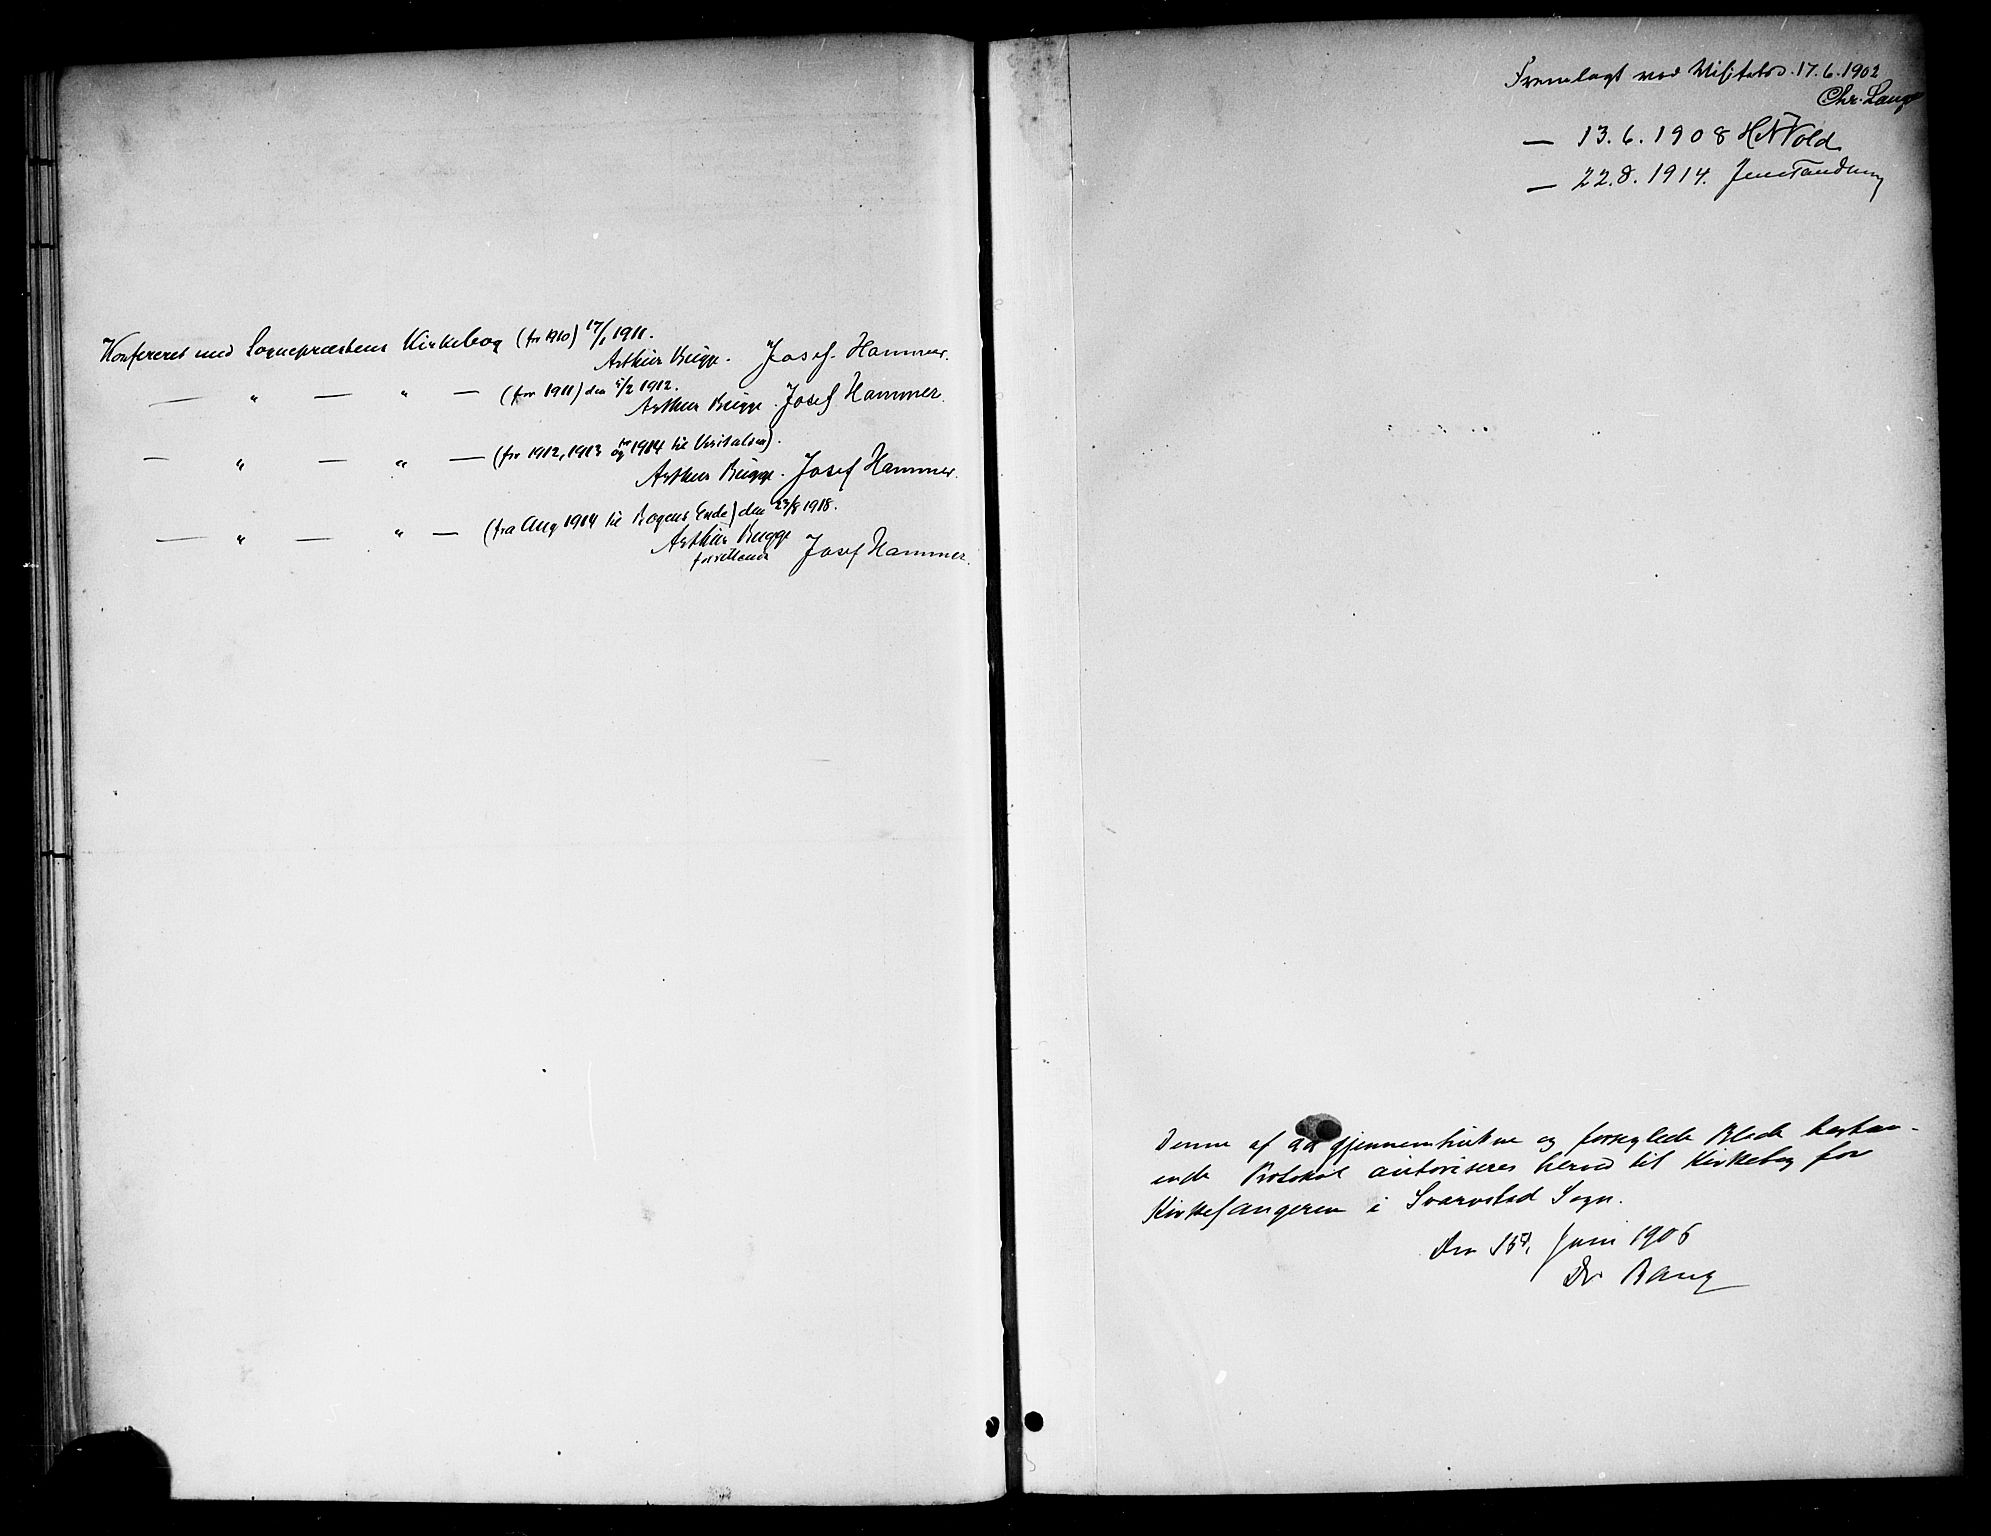 Konfereret med Sognepræstens Kirkebog (for 1910) 17/1 1911.
Arthur Bugge. Josef Hammer.
— " — " — (for 1911) den 5/2 1912.
Arthur Bugge. Josef Hammer.
— " — " — (for 1912, 1913 og for 1914 til Visitatsen).
Arthur Bugge. Josef Hammer.
— " — " — (fra Aug 1914 til Bogens Ende) den 23/8 1918.
Arthur Bugge Josef Hammer.
forrettende
Fremlagt ved Visitats. 17.6.1902
Chr. Lange
— 13.6.1908 HNVold
— 22.8.1914. Jens Tandberg
Denne af gjennemtrukne og forseglede Blade bestaa-
ende Protokol autoriseres herved til Kirkebog for
Kirkesangeren i Svarvstad Sogn.
Den Juni 1906
Dr Bang